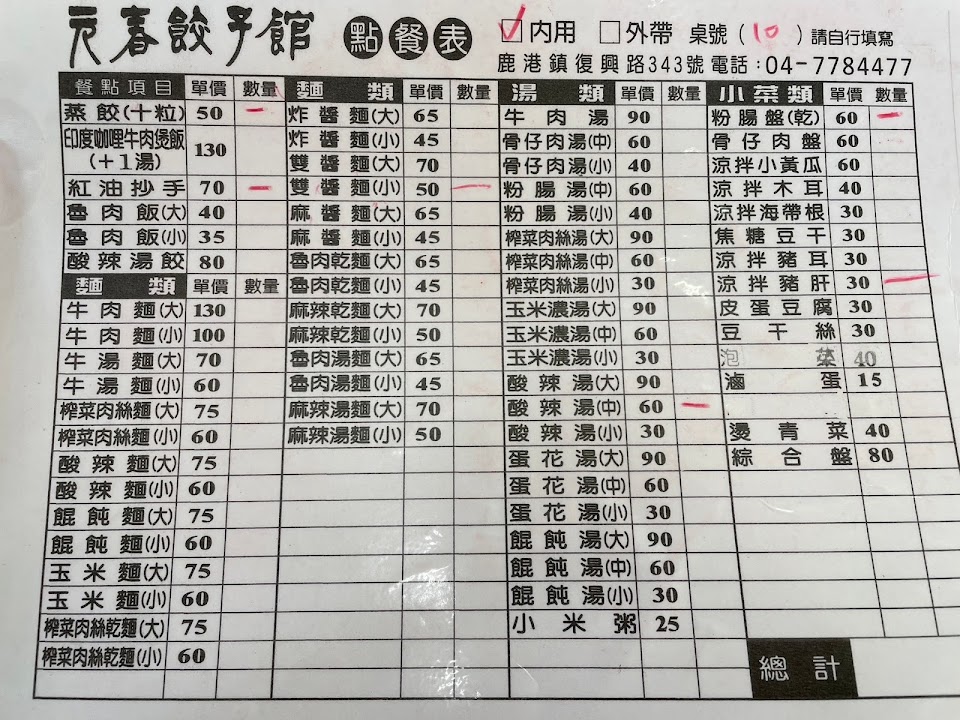 元春餃子館 點餐表 ☑內用 □外帶 桌號(10)請自行填寫
鹿港鎮復興路343號電話:04-7784477
餐點項目 單價 數量
蒸餃(十粒) 50 一
印度咖哩牛肉煲飯
(+1湯) 130
紅油抄手 70 一
魯肉飯(大) 40
魯肉飯(小) 35
酸辣湯餃 80
麵類 單價 數量
牛肉麵(大) 130
牛肉麵(小) 100
牛湯麵(大) 70
牛湯麵(小) 60
榨菜肉絲麵(大) 75
榨菜肉絲麵(小) 60
酸辣麵(大) 75
酸辣麵(小) 60
餛飩麵(大) 75
餛飩麵(小) 60
玉米麵(大) 75
玉米麵(小) 60
榨菜肉絲乾麵(大) 75
榨菜肉絲乾麵(小) 60
麵類 單價 數量
炸醬麵(大) 65
炸醬麵(小) 45
雙醬麵(大) 70
雙醬麵(小) 50 一
麻醬麵(大) 65
麻醬麵(小) 45
魯肉乾麵(大) 65
魯肉乾麵(小) 45
麻辣乾麵(大) 70
麻辣乾麵(小) 50
魯肉湯麵(大) 65
魯肉湯麵(小) 45
麻辣湯麵(大) 70
麻辣湯麵(小) 50
湯類 單價 數量
牛肉湯 90
骨仔肉湯(中) 60
骨仔肉湯(小) 40
粉腸湯(中) 60
粉腸湯(小) 40
榨菜肉絲湯(大) 90
榨菜肉絲湯(中) 60
榨菜肉絲湯(小) 30
玉米濃湯(大) 90
玉米濃湯(中) 60
玉米濃湯(小) 30
酸辣湯(大) 90
酸辣湯(中) 60 一
酸辣湯(小) 30
蛋花湯(大) 90
蛋花湯(中) 60
蛋花湯(小) 30
餛飩湯(大) 90
餛飩湯(中) 60
餛飩湯(小) 30
小米粥 25
小菜類 單價 數量
粉腸盤(乾) 60 一
骨仔肉盤 60
涼拌小黃瓜 60
涼拌木耳 40
涼拌海帶根 30
焦糖豆干 30
涼拌豬耳 30
涼拌豬肝 30 一
皮蛋豆腐 30
豆干絲 30
泡菜 40
滷蛋 15
燙青菜 40
綜合盤 80
總計